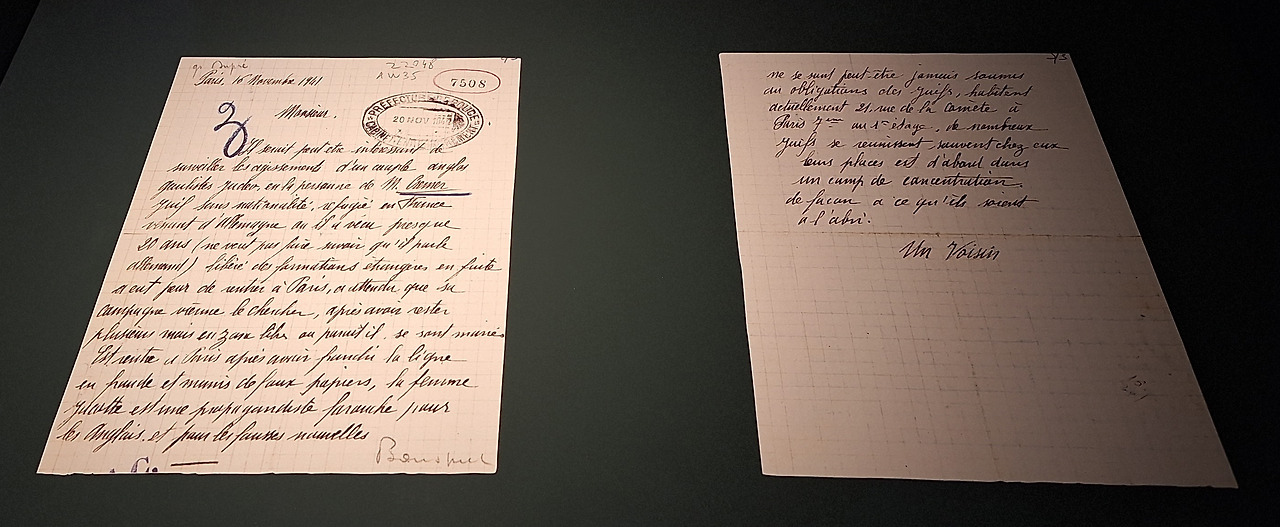 Paris, 10 Novembre 1941
22948
AW35
7508
PREFECTURE DE POLICE
20 NOV 1941
Monsieur,
Il serait peut etre intéressant de
surveiller les agissements d'un couple anglos
gaullistes judeo, en la personne de M. Cremer
Juif sans nationalité, refugié en France
venant d'Allemagne ou il a vécu presque
20 ans (ne veut pas faire savoir qu'il parle
allemand) libéré des formations étrangères en fuite
a eut peur de rentré à Paris, a attendu que sa
compagne vienne le chercher, après avoir rester
plusieurs mois en zone libre ou parait il, se sont mariés
Est rentré à Paris après avoir franchi la ligne
en fraude et munis de faux papiers, la femme
est une propagandiste farouche pour
les Anglais, et pour les fausses nouvelles
ne se sont peut-être jamais soumis
au obligations des Juifs, habitent
actuellement 21, rue de la Comète à
Paris 7ème au 1er étage, de nombreux
Juifs se reunissent souvent chez eux
leurs places est d'abord dans
un camp de concentration
de facon a ce qu'ils soient
a l'abri.
Un Voisin